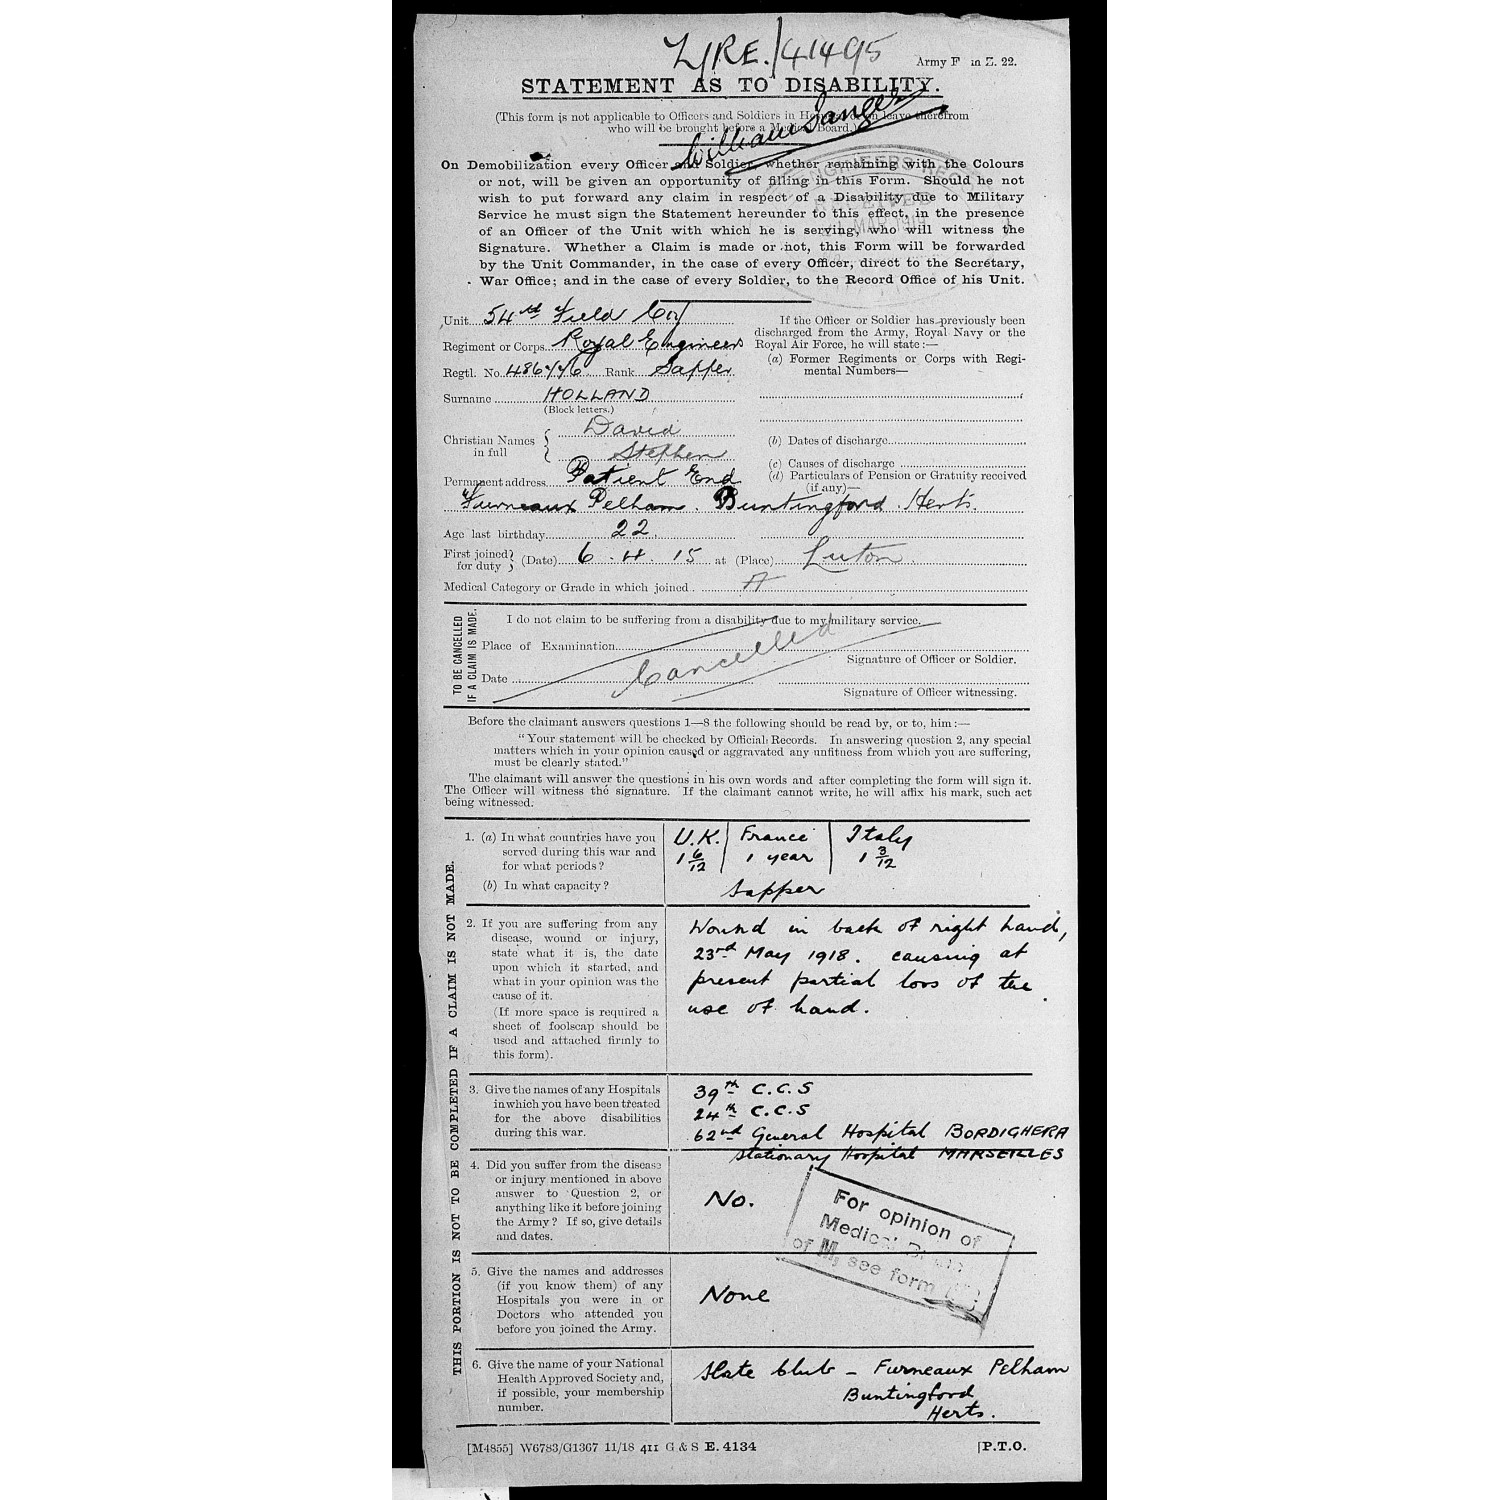 Z/RE./41495
Army F in Z. 22.
STATEMENT AS TO DISABILITY.
(This form is not applicable to Officers and Soldiers in Hospital or on leave therefrom
who will be brought before a Medical Board.)
William Sanger
On Demobilization every Officer and Soldier, whether remaining with the Colours
or not, will be given an opportunity of filling in this Form. Should he not
wish to put forward any claim in respect of a Disability due to Military
Service he must sign the Statement hereunder to this effect, in the presence
of an Officer of the Unit with which he is serving, who will witness the
Signature. Whether a Claim is made or not, this Form will be forwarded
by the Unit Commander, in the case of every Officer, direct to the Secretary,
War Office; and in the case of every Soldier, to the Record Office of his Unit.
ENGINEERS RECO
RECEIVED
MAR 1919
Unit 54th Field Coy
Regiment or Corps Royal Engineers
Regtl. No. 486446 Rank Sapper
Surname HOLLAND
(Block letters.)
Christian Names in full David
Stephen
Permanent address Patient End
Furneaux Pelham. Buntingford. Herts.
If the Officer or Soldier has previously been
discharged from the Army, Royal Navy or the
Royal Air Force, he will state:—
(a) Former Regiments or Corps with Regi-
mental Numbers—
(b) Dates of discharge
(c) Causes of discharge
(d) Particulars of Pension or Gratuity received
(if any)—
Age last birthday 22.
First joined for duty } (Date) 6. 4. 15 at (Place) Luton.
Medical Category or Grade in which joined. A
TO BE CANCELLED
IF A CLAIM IS MADE.
I do not claim to be suffering from a disability due to my military service.
Place of Examination
Signature of Officer or Soldier.
Cancelled
Date
Signature of Officer witnessing.
Before the claimant answers questions 1—8 the following should be read by, or to, him:—
"Your statement will be checked by Official Records. In answering question 2, any special
matters which in your opinion caused or aggravated any unfitness from which you are suffering,
must be clearly stated."
The claimant will answer the questions in his own words and after completing the form will sign it.
The Officer will witness the signature. If the claimant cannot write, he will affix his mark, such act
being witnessed.
THIS PORTION IS NOT TO BE COMPLETED IF A CLAIM IS NOT MADE.
1. (a) In what countries have you
served during this war and
for what periods?
(b) In what capacity?
U.K. | France | Italy
1 6/12 | 1 year | 1 3/12
Sapper
2. If you are suffering from any
disease, wound or injury,
state what it is, the date
upon which it started, and
what in your opinion was the
cause of it.
(If more space is required a
sheet of foolscap should be
used and attached firmly to
this form).
Wound in back of right hand,
23rd May 1918. causing at
present partial loss of the
use of hand.
3. Give the names of any Hospitals
in which you have been treated
for the above disabilities
during this war.
39th C.C.S
24th C.C.S
62nd General Hospital BORDIGHERA
Stationary Hospital MARSEILLES
4. Did you suffer from the disease
or injury mentioned in above
answer to Question 2, or
anything like it before joining
the Army? If so, give details
and dates.
No.
For opinion of
Medical
of III, see form
5. Give the names and addresses
(if you know them) of any
Hospitals you were in or
Doctors who attended you
before you joined the Army.
None
6. Give the name of your National
Health Approved Society and,
if possible, your membership
number.
Slate Club – Furneaux Pelham
Buntingford
Herts.
[M4855] W6783/G1367 11/18 411 G & S E. 4134
[P.T.O.